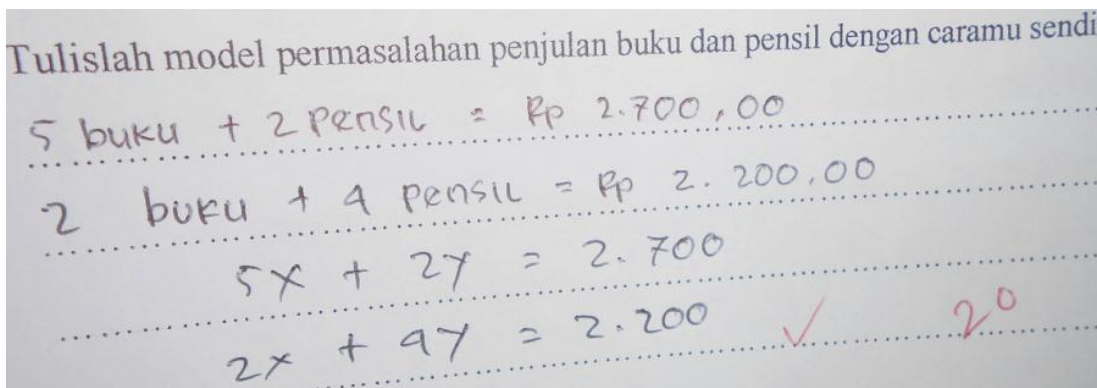 Tulislah model permasalahan penjulan buku dan pensil dengan caramu sendi
5 buku + 2 Pensil = Rp 2.700,00
2 buku + 4 pensil = Rp 2.200,00
5x + 2y = 2.700
2x + 4y = 2.200 ✓ 20